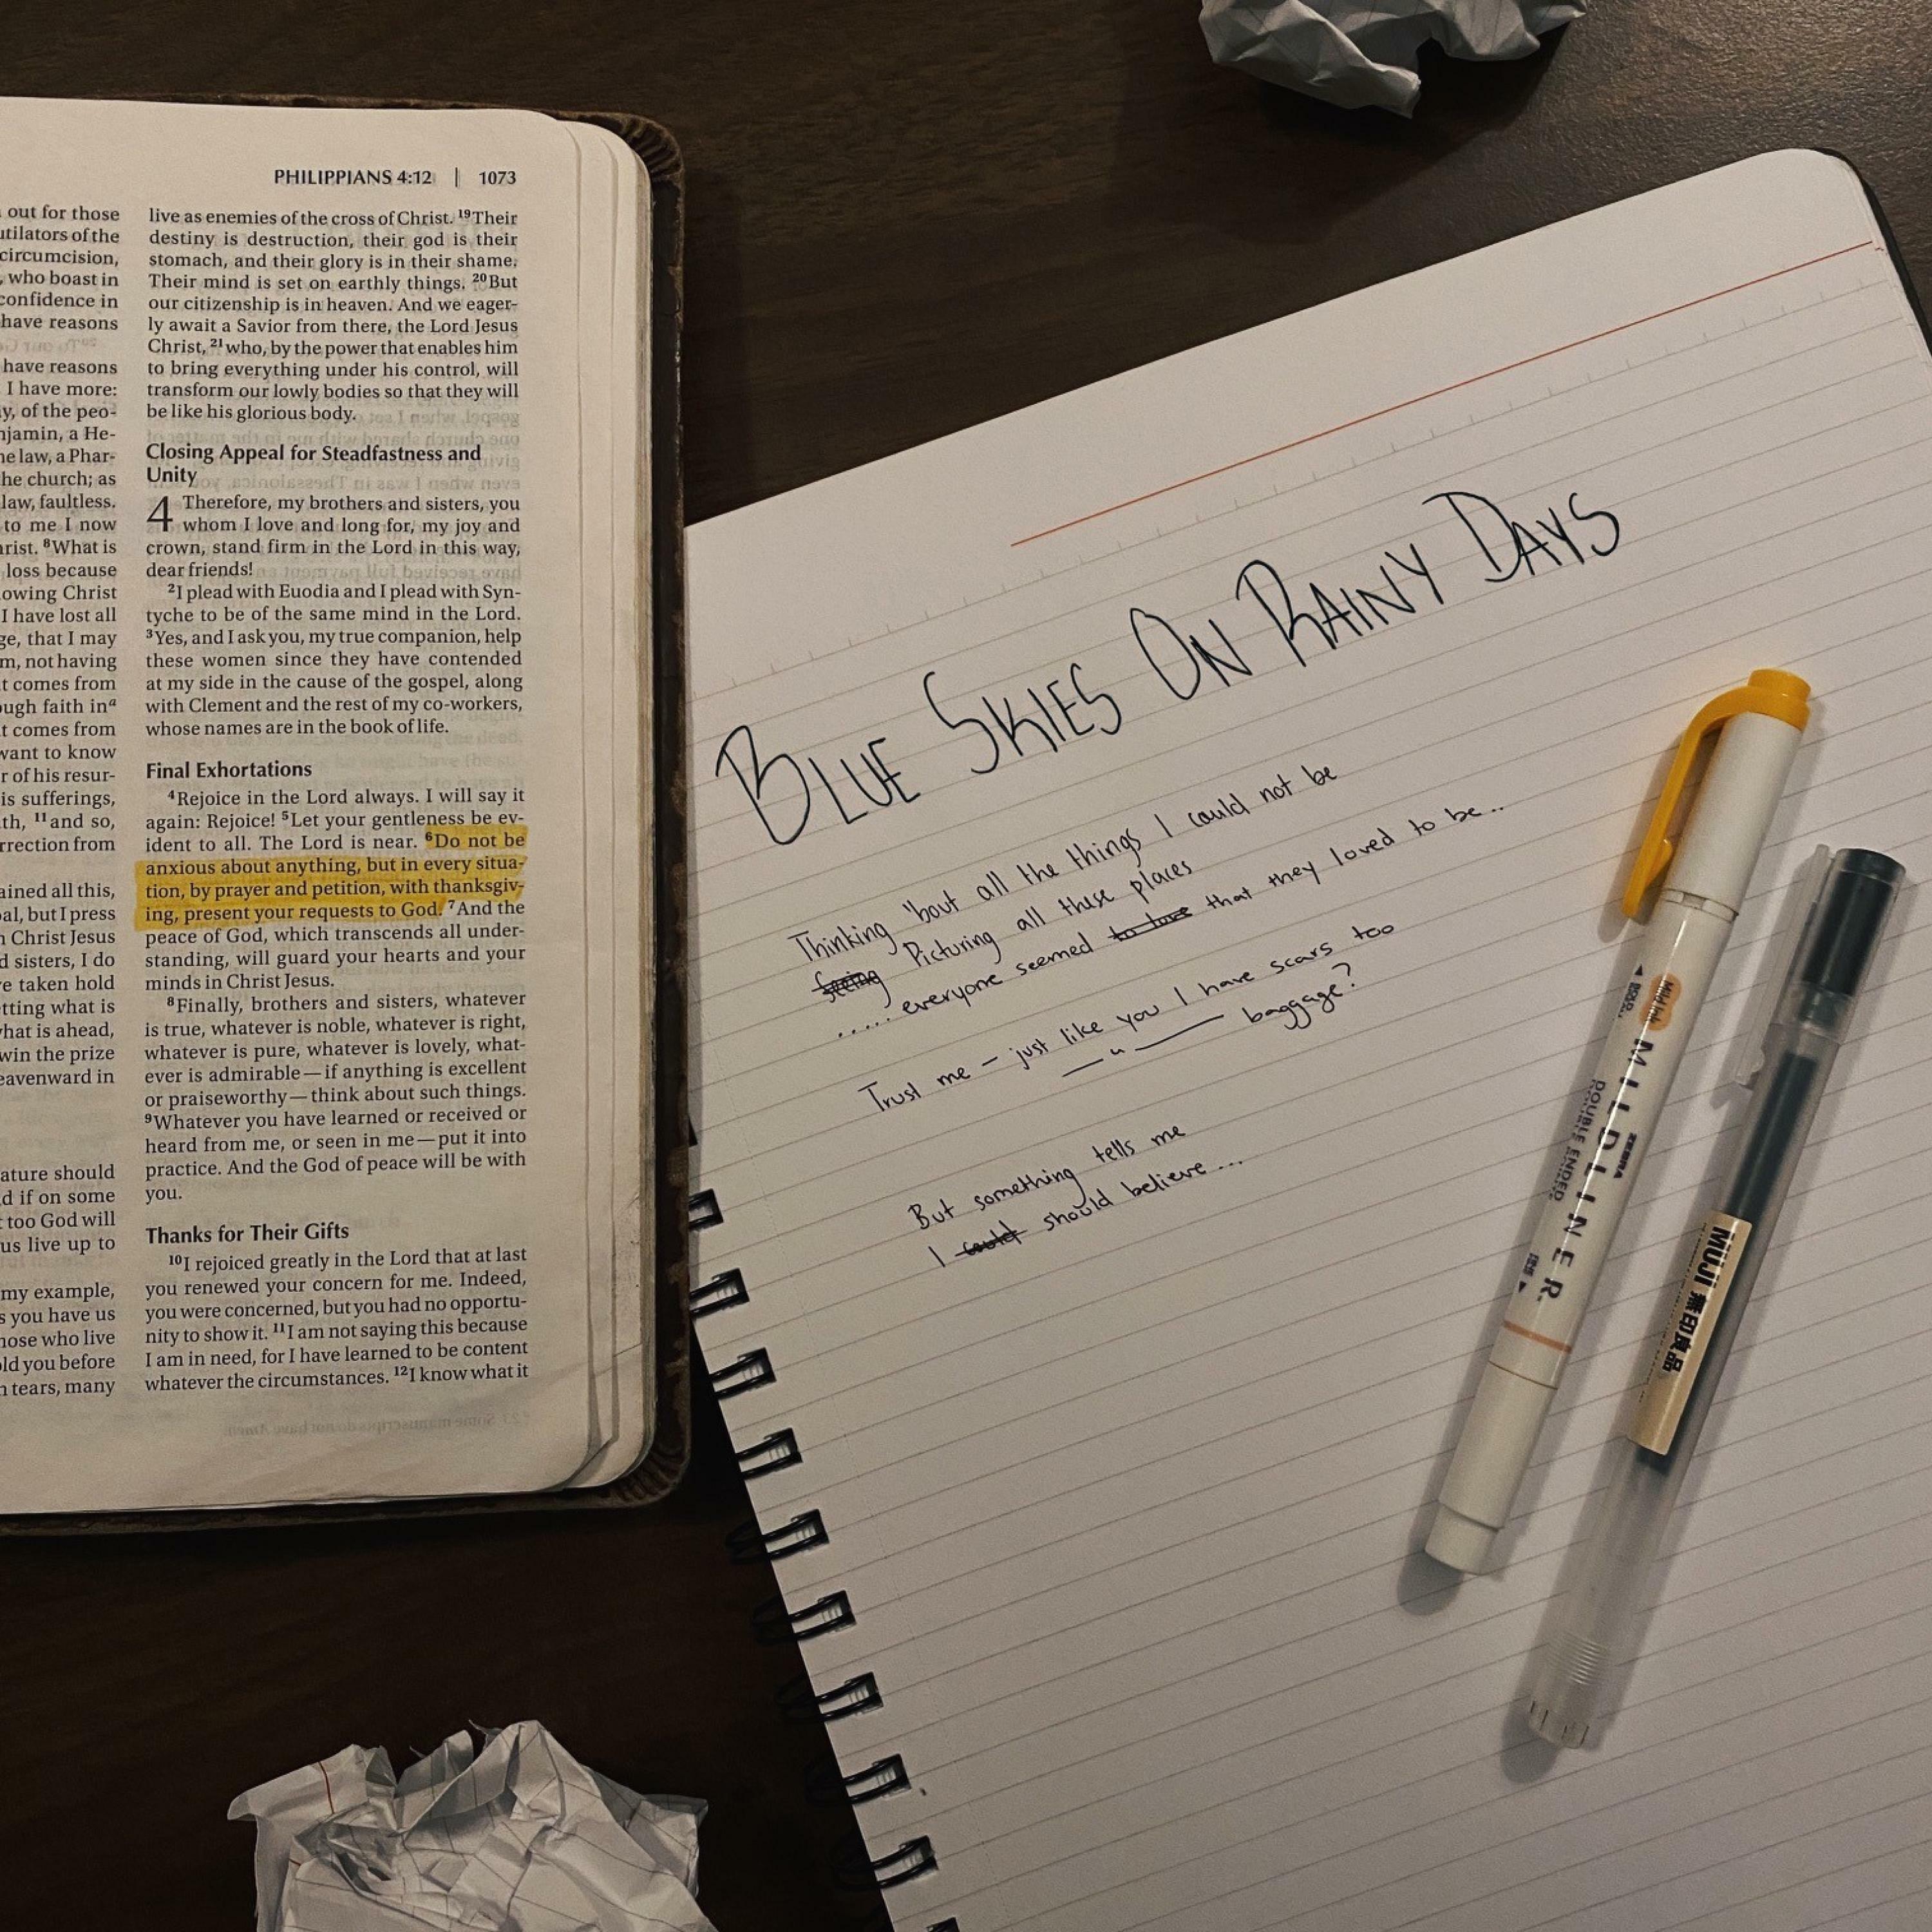 PHILIPPIANS 4:12 | 1073
out for those
utilators of the
circumcision,
, who boast in
confidence in
have reasons
have reasons
I have more:
y, of the peo-
njamin, a He-
he law, a Phar-
he church; as
law, faultless.
to me I now
hrist. ⁸What is
loss because
owing Christ
I have lost all
ge, that I may
m, not having
t comes from
ugh faith inᵃ
t comes from
want to know
r of his resur-
is sufferings,
th, ¹¹and so,
rrection from
ained all this,
al, but I press
Christ Jesus
d sisters, I do
e taken hold
etting what is
what is ahead,
win the prize
eavenward in
ature should
d if on some
too God will
us live up to
my example,
s you have us
hose who live
old you before
tears, many
live as enemies of the cross of Christ. ¹⁹Their
destiny is destruction, their god is their
stomach, and their glory is in their shame.
Their mind is set on earthly things. ²⁰But
our citizenship is in heaven. And we eager-
ly await a Savior from there, the Lord Jesus
Christ, ²¹who, by the power that enables him
to bring everything under his control, will
transform our lowly bodies so that they will
be like his glorious body.
Closing Appeal for Steadfastness and
Unity
4 Therefore, my brothers and sisters, you
whom I love and long for, my joy and
crown, stand firm in the Lord in this way,
dear friends!
²I plead with Euodia and I plead with Syn-
tyche to be of the same mind in the Lord.
³Yes, and I ask you, my true companion, help
these women since they have contended
at my side in the cause of the gospel, along
with Clement and the rest of my co-workers,
whose names are in the book of life.
Final Exhortations
⁴Rejoice in the Lord always. I will say it
again: Rejoice! ⁵Let your gentleness be ev-
ident to all. The Lord is near. ⁶Do not be
anxious about anything, but in every situa-
tion, by prayer and petition, with thanksgiv-
ing, present your requests to God. ⁷And the
peace of God, which transcends all under-
standing, will guard your hearts and your
minds in Christ Jesus.
⁸Finally, brothers and sisters, whatever
is true, whatever is noble, whatever is right,
whatever is pure, whatever is lovely, what-
ever is admirable—if anything is excellent
or praiseworthy—think about such things.
⁹Whatever you have learned or received or
heard from me, or seen in me—put it into
practice. And the God of peace will be with
you.
Thanks for Their Gifts
¹⁰I rejoiced greatly in the Lord that at last
you renewed your concern for me. Indeed,
you were concerned, but you had no opportu-
nity to show it. ¹¹I am not saying this because
I am in need, for I have learned to be content
whatever the circumstances. ¹²I know what it
BLUE SKIES ON RAINY DAYS
Thinking 'bout all the things I could not be
seeing Picturing all these places
..... everyone seemed to love that they loved to be..
Trust me – just like you I have scars too
— " — baggage?
But something tells me
I could should believe...
Mild Ink
ZEBRA
MILDLINER
DOUBLE ENDED
MUJI 無印良品